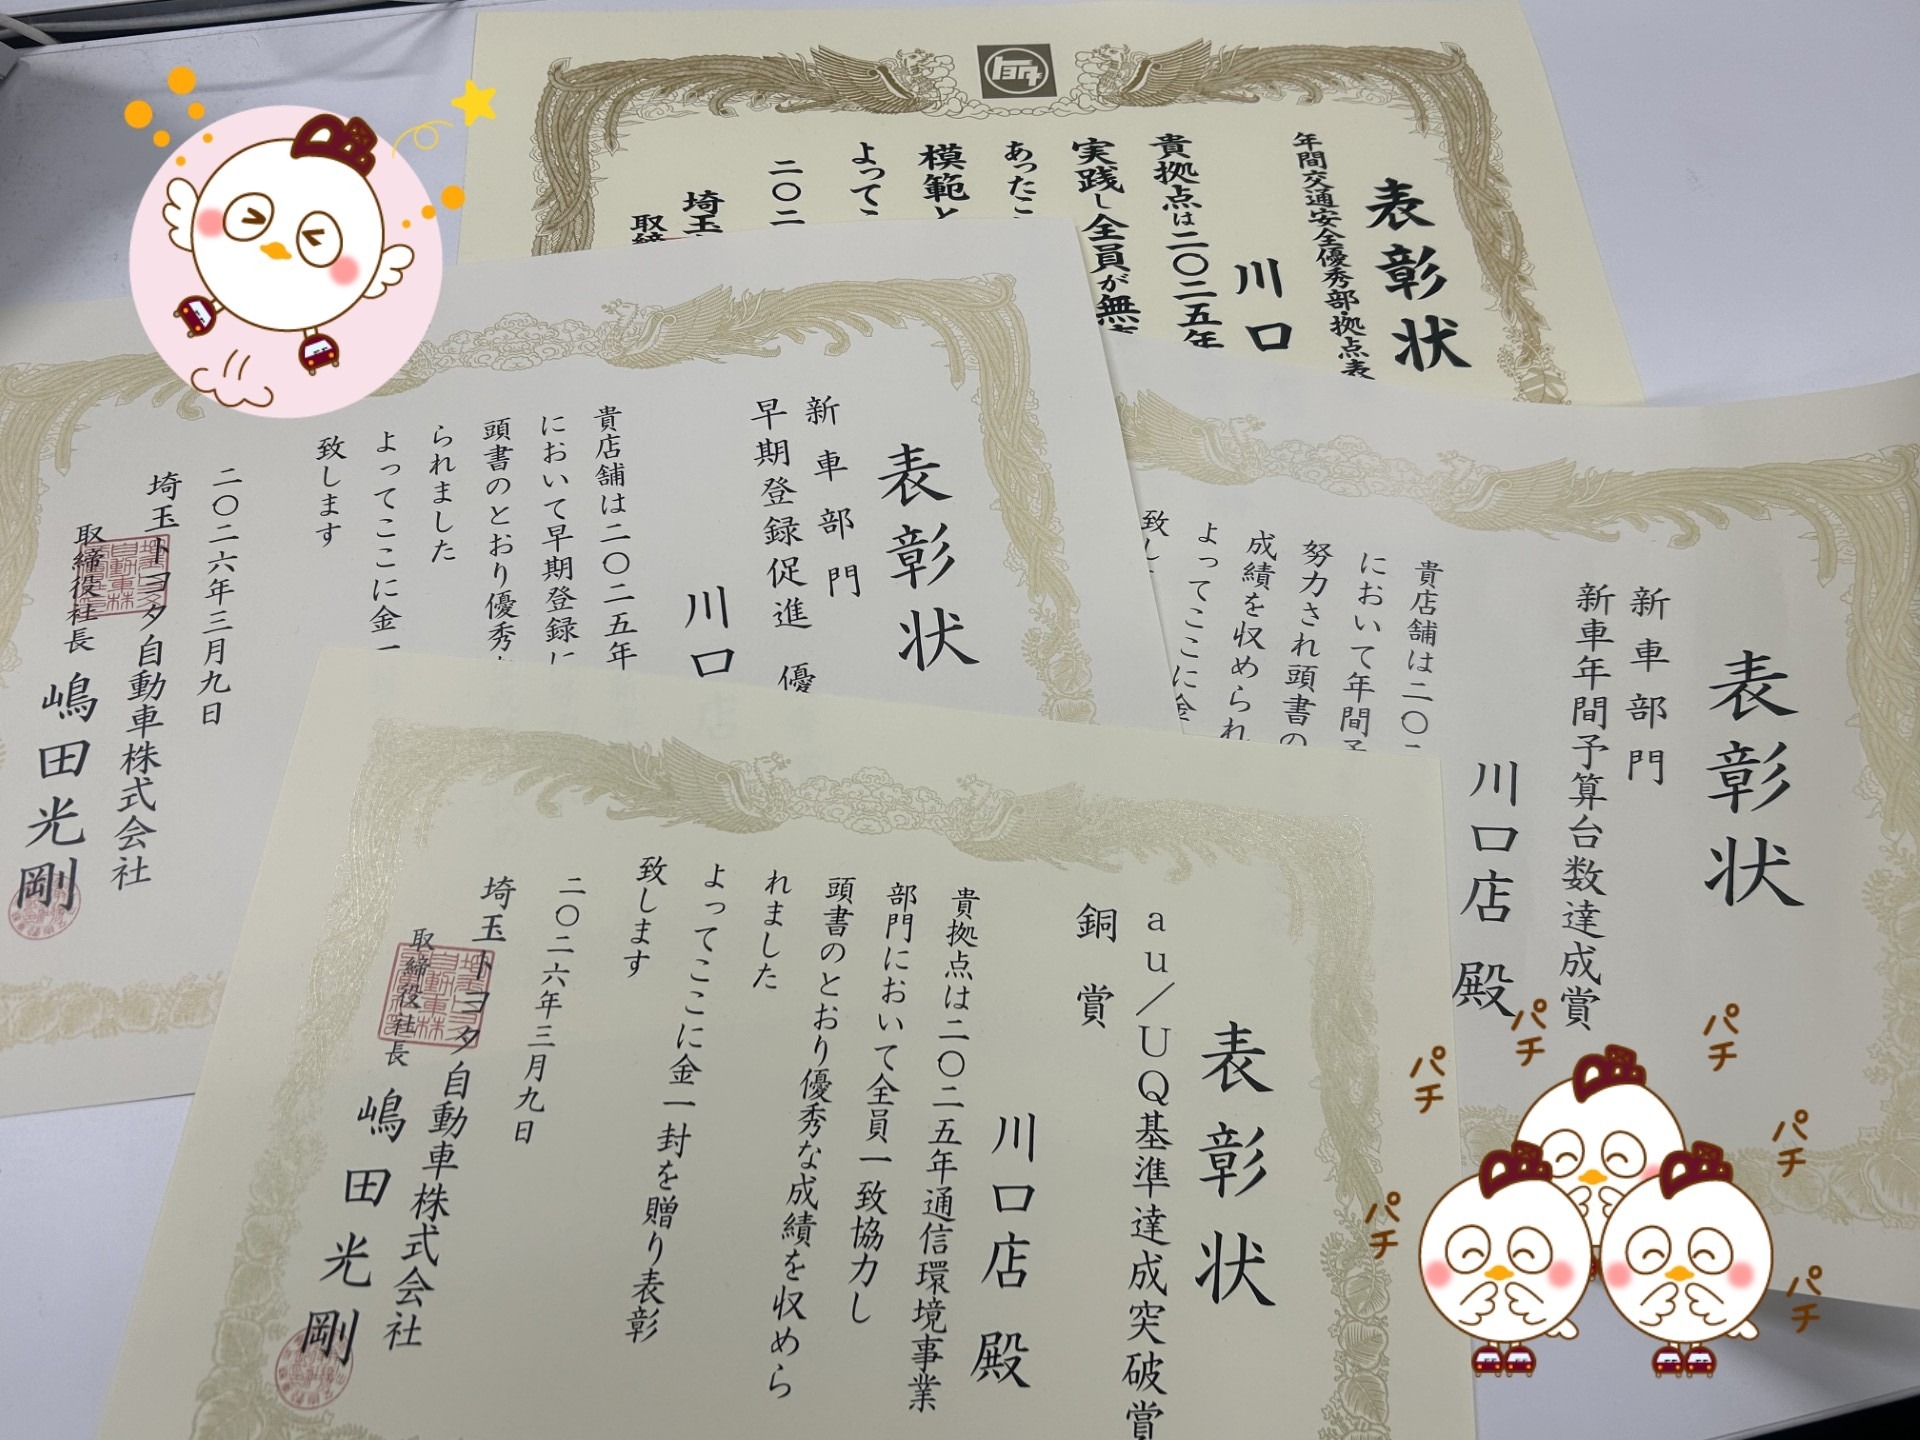 トヨタ
表彰状
年間交通安全優秀部・拠点表
川口
貴拠点は二〇二五年
実践し全員が無
あったこ
模範と
よってこ
二〇二
埼玉
取締
表彰状
新車部門
早期登録促進 優
川口
貴店舗は二〇二五年
において早期登録に
頭書のとおり優秀
られました
よってここに金一
致します
二〇二六年三月九日
埼玉トヨタ自動車株式会社
取締役社長 嶋田光剛
表彰状
新車部門
新車年間予算台数達成賞
川口店 殿
貴店舗は二〇二
において年間予
努力され頭書の
成績を収められ
よってここに金
致し
表彰状
au/UQ基準達成突破賞
銅賞
川口店 殿
貴拠点は二〇二五年通信環境事業
部門において全員一致協力し
頭書のとおり優秀な成績を収めら
れました
よってここに金一封を贈り表彰
致します
二〇二六年三月九日
埼玉トヨタ自動車株式会社
取締役社長 嶋田光剛
パチ
パチ
パチ
パチ
パチ
パチ